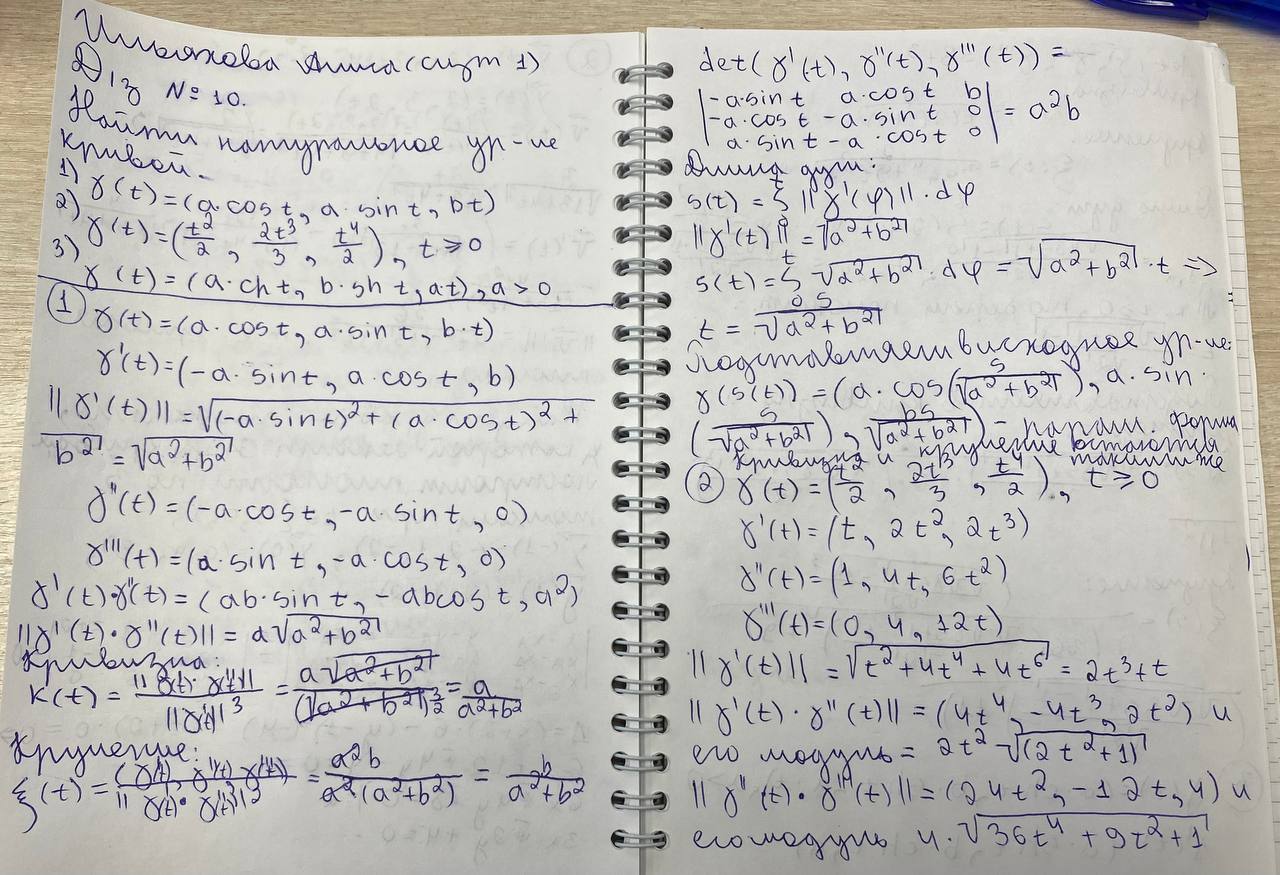 Ильязова Алиса (сигм 1)
Д/з № 10.
Найти натуральное ур-ие
кривой.
1) γ(t) = (a·cos t, a·sin t, bt)
2) γ(t) = (t²/2, 2t³/3, t⁴/2), t ≥ 0
3) γ(t) = (a·ch t, b·sh t, at), a > 0
① γ(t) = (a·cos t, a·sin t, b·t)
γ'(t) = (-a·sin t, a·cos t, b)
||γ'(t)|| = √((-a·sin t)² + (a·cos t)² +
b²) = √(a²+b²)
γ''(t) = (-a·cos t, -a·sin t, 0)
γ'''(t) = (a·sin t, -a·cos t, 0)
γ'(t)·γ''(t) = (ab·sin t, -ab cos t, a²)
||γ'(t)·γ''(t)|| = a√(a²+b²)
Кривизна:
K(t) = ||γ'(t)·γ''(t)|| / ||γ'(t)||³ = a√(a²+b²) / (√(a²+b²))^3/2 = a/(a²+b²)
Кручение:
ξ(t) = (γ'(t), γ''(t), γ'''(t)) / ||γ'(t)·γ''(t)||² = a²b / a²·(a²+b²) = b/(a²+b²)
det(γ'(t), γ''(t), γ'''(t)) =
|-a·sin t a·cos t b|
|-a·cos t -a·sin t 0| = a²b
|a·sin t -a·cos t 0|
Длина дуги:
s(t) = ∫₀ᵗ ||γ'(φ)||·dφ
||γ'(t)|| = √(a²+b²)
s(t) = ∫₀ᵗ √(a²+b²)·dφ = √(a²+b²)·t =>
t = s/√(a²+b²)
Подставляем в исходное ур-ие:
γ(s(t)) = (a·cos(s/√(a²+b²)), a·sin·
(s/√(a²+b²)), bs/√(a²+b²)) - парам. форма
кривизна и кручение остаются
такими же
② γ(t) = (t²/2, 2t³/3, t⁴/2), t ≥ 0
γ'(t) = (t, 2t², 2t³)
γ''(t) = (1, 4t, 6t²)
γ'''(t) = (0, 4, 12t)
||γ'(t)|| = √(t²+4t⁴+4t⁶) = 2t³+t
||γ'(t)·γ''(t)|| = (4t⁴, -4t³, 2t²) и
его модуль = 2t²·√((2t²+1))
||γ''(t)·γ'''(t)|| = (24t², -12t, 4) и
его модуль 4·√(36t⁴+9t²+1)